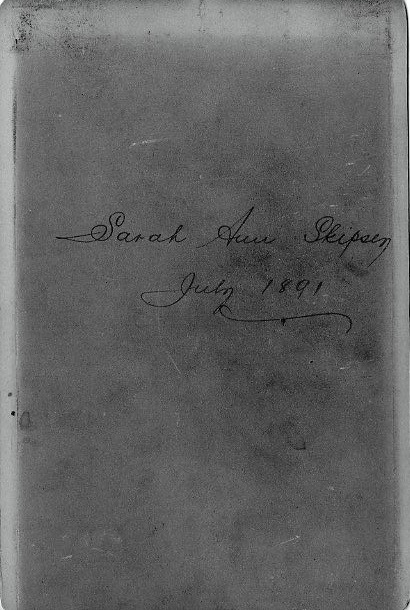 Sarah Ann Skipsey
July 1891